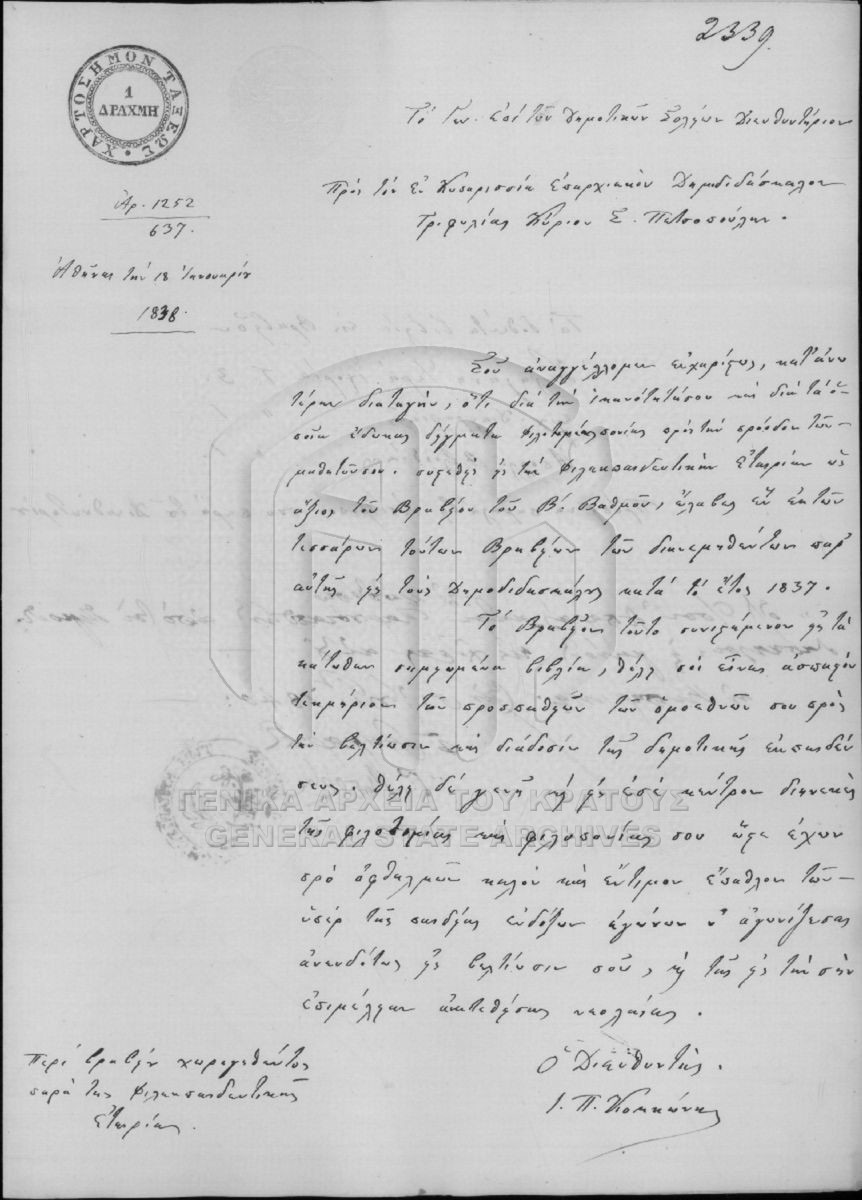 2339.
ΧΑΡΤΟΣΗΜΟΝ ΤΑΞΕΩΣ
1
ΔΡΑΧΜΗ
Τὸ Γεν. ἐπὶ τῶν Δημοτικῶν Σχολείων Διευθυντήριον
Ἀρ. 1252
637.
Πρὸς τὸν ἐν Κυπαρισσίᾳ ἐπαρχιακὸν Δημοδιδάσκαλον
Τριφυλίας Κύριον Σ. Πετσοπούλην.
Ἀθήνας τὴν 18 Ἰανουαρίου
1838.
Σοῦ ἀναγγέλλομεν εὐχαρίστως, κατ' ἀνω
τέραν διαταγὴν, ὅτι διὰ τὴν ἱκανότητά σου καὶ διὰ τὰ ὁ-
ποῖα ἔδωκας δείγματα φιλοπονίας πρὸς τὴν πρόοδον τῶν
μαθητῶν σου. συσταθεὶς εἰς τὴν Φιλεκπαιδευτικὴν Ἑταιρίαν ὡς
ἄξιος τοῦ Βραβείου τοῦ Β. Βαθμοῦ, ἔλαβες ἓν ἐκ τῶν
τεσσάρων τούτων Βραβείων τῶν διανεμηθέντων παρ'
αὐτῆς εἰς τοὺς Δημοδιδασκάλους κατὰ τὸ ἔτος 1837.
Τὸ Βραβεῖον τοῦτο συνιστάμενον εἰς τὰ
κάτωθεν σημειωμένα βιβλία, θέλει σοὶ εἶναι ἀσφαλὲς
τεκμήριον τῶν προσπαθειῶν τῶν ὁμοεθνῶν σου πρὸς
τὴν βελτίωσιν καὶ διάδοσιν τῆς δημοτικῆς ἐκπαιδεύ
σεως. θέλει δὲ γενῆ καὶ εἰς ἐσὲ κέντρον διηνεκὲς
τῆς φιλοτιμίας καὶ φιλοπονίας σου ὥστε ἔχων
πρὸ ὀφθαλμῶν καλὸν καὶ ἔντιμον ἔπαθλον τῶν
ὑπὲρ τῆς παιδείας ἐνδόξων ἀγώνων ν' ἀγωνίζεσαι
ἀνενδότως εἰς βελτίωσιν σοῦ, καὶ τῆς εἰς τὴν σὴν
ἐπιμέλειαν ἀνατεθείσης νεολαίας.
Ὁ Διευθυντὴς.
Ι. Π. Κοκκώνης
Περὶ βραβείου χορηγηθέντος
παρὰ τῆς Φιλεκπαιδευτικῆς
Ἑταιρίας.
ΓΕΝΙΚΑ ΑΡΧΕΙΑ ΤΟΥ ΚΡΑΤΟΥΣ
GENERAL STATE ARCHIVES